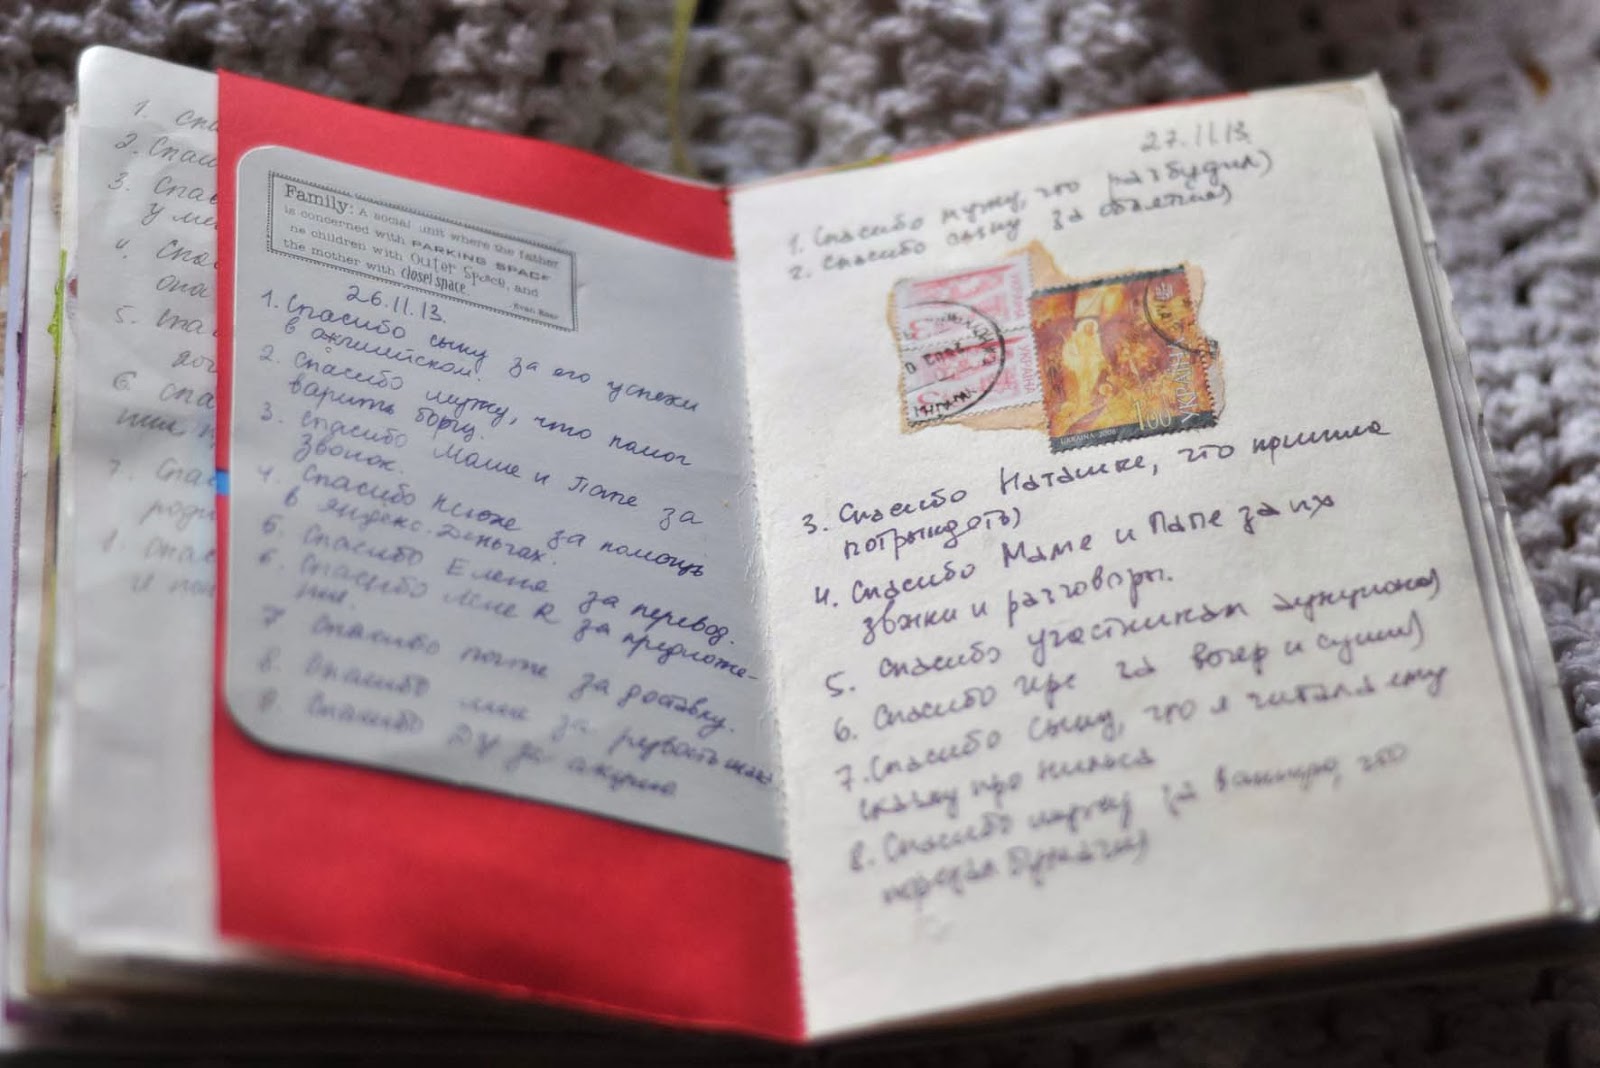 1. Спа
2. Спаси
3. Спас
у ме
4. Спас
она
5. Спа
6. Спа
7. Спас
роди
Спас
и
Family: A social unit where the father
is concerned with PARKING SPACE
he children with Outer Space, and
the mother with closet space.
Evan Esar
26.11.13.
1. Спасибо сыну за его успехи
в английском.
2. Спасибо мужу, что помог
варить борщ.
3. Спасибо Маме и Папе за
звонок.
4. Спасибо за помощь
в Яндекс.Деньгах.
5. Спасибо Елене за перевод.
6. Спасибо Лене К за предложе-
ние.
7. Спасибо почте за доставку.
8. Спасибо мне за
9. Спасибо ДУ за
27.11.13.
1. Спасибо мужу, что разбудил)
2. Спасибо сыну за объятия)
УКРАЇНА
1.00 УКРАЇНА
UKRAINA
3. Спасибо Наташке, что пришла
потрындеть)
4. Спасибо Маме и Папе за их
звонки и разговоры.
5. Спасибо участникам аукциона)
6. Спасибо Ире за вечер и суши)
7. Спасибо сыну, что я читала ему
сказку про Нильса
8. Спасибо мужу за что
передал бумаги)